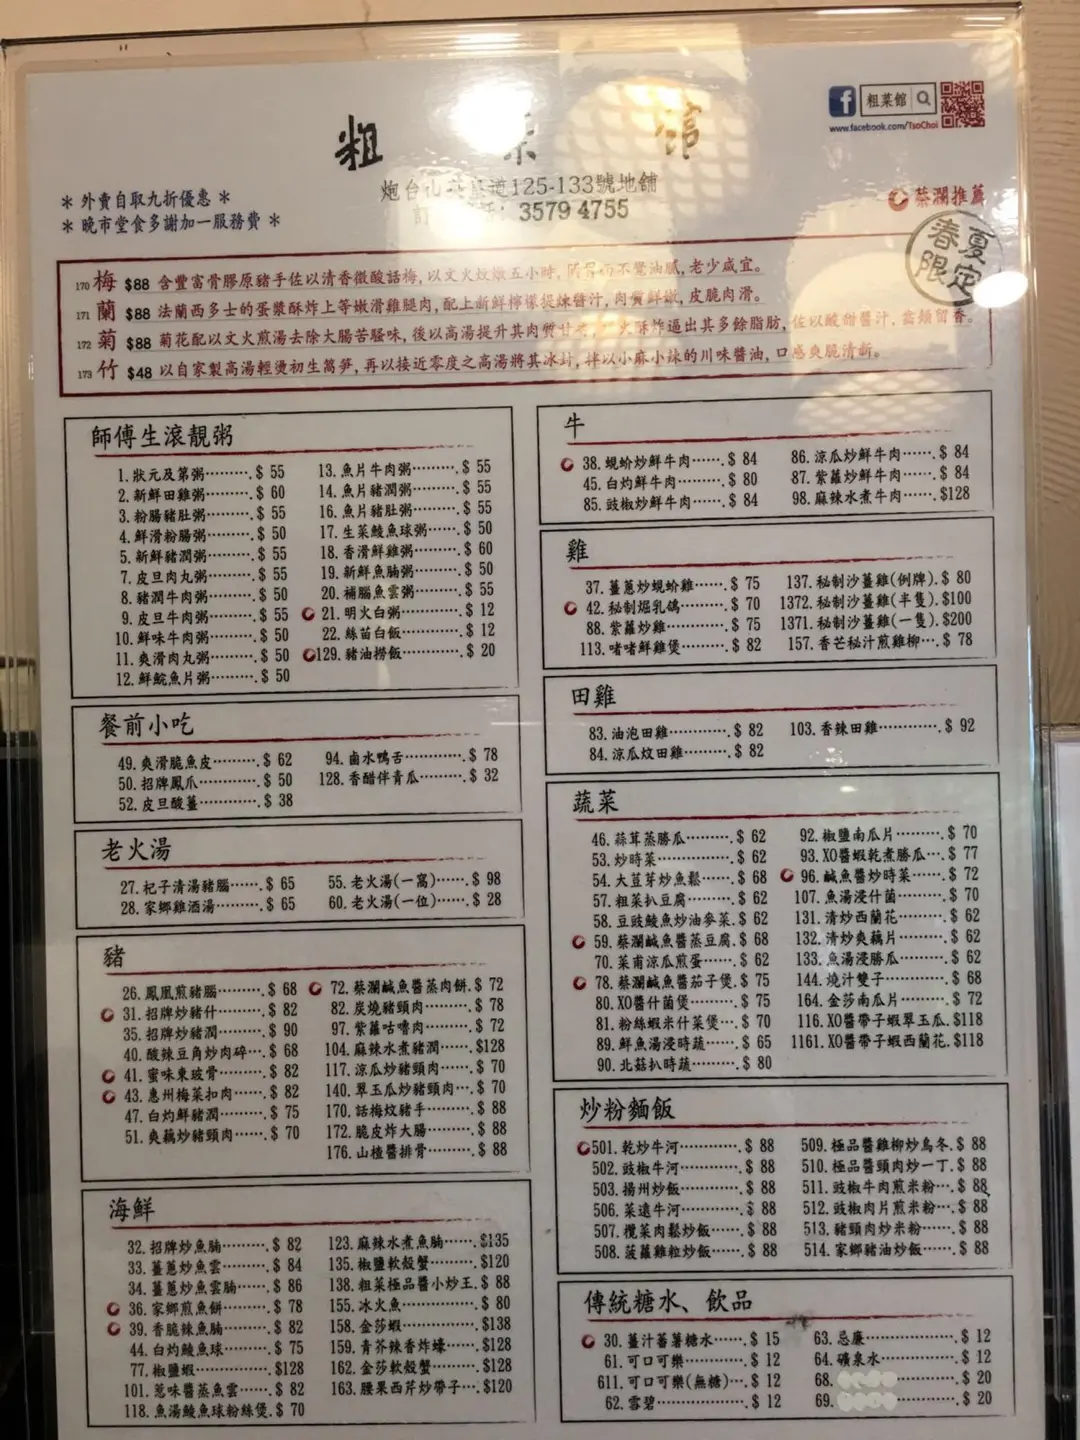 粗菜館
炮台山英皇道125-133號地舖
3579 4755
粗菜館
www.facebook.com/TsoChoi
* 外賣自取九折優惠 *
* 晚市堂食多謝加一服務費 *
蔡瀾推薦
春夏限定
170 梅 $88 含豐富骨膠原豬手佐以清香微酸話梅, 以文火炆嫩五小時, 不覺油膩, 老少咸宜。
171 蘭 $88 法蘭西多士的蛋漿酥炸上等嫩滑雞腿肉, 配上新鮮檸檬提煉醬汁, 肉質鮮嫩, 皮脆肉滑。
172 菊 $88 菊花配以文火煎湯去除大腸苦騷味, 後以高湯提升其肉質甘 火酥炸逼出其多餘脂肪, 佐以酸甜醬汁, 齒頰留香。
173 竹 $48 以自家製高湯輕燙初生萵筍, 再以接近零度之高湯將其冰封, 拌以小麻小辣的川味醬油, 口感爽脆清新。
師傅生滾靚粥
1. 狀元及第粥 $ 55
2. 新鮮田雞粥 $ 60
3. 粉腸豬肚粥 $ 55
4. 鮮滑粉腸粥 $ 50
5. 新鮮豬潤粥 $ 55
7. 皮旦肉丸粥 $ 55
8. 豬潤牛肉粥 $ 50
9. 皮旦牛肉粥 $ 55
10. 鮮味牛肉粥 $ 50
11. 爽滑肉丸粥 $ 50
12. 鮮鯇魚片粥 $ 50
13. 魚片牛肉粥 $ 55
14. 魚片豬潤粥 $ 55
16. 魚片豬肚粥 $ 55
17. 生菜鯪魚球粥 $ 50
18. 香滑鮮雞粥 $ 60
19. 新鮮魚腩粥 $ 50
20. 補腦魚雲粥 $ 55
21. 明火白粥 $ 12
22. 絲苗白飯 $ 12
129. 豬油撈飯 $ 20
餐前小吃
49. 爽滑脆魚皮 $ 62
50. 招牌鳳爪 $ 50
52. 皮旦酸薑 $ 38
94. 鹵水鴨舌 $ 78
128. 香醋伴青瓜 $ 32
老火湯
27. 杞子清湯豬腦 $ 65
28. 家鄉雞酒湯 $ 65
55. 老火湯(一窩) $ 98
60. 老火湯(一位) $ 28
豬
26. 鳳凰煎豬腦 $ 68
31. 招牌炒豬什 $ 82
35. 招牌炒豬潤 $ 90
40. 酸辣豆角炒肉碎 $ 68
41. 蜜味東玻骨 $ 82
43. 惠州梅菜扣肉 $ 82
47. 白灼鮮豬潤 $ 75
51. 爽藕炒豬頸肉 $ 70
72. 蔡瀾鹹魚醬蒸肉餅 $ 72
82. 炭燒豬頸肉 $ 78
97. 紫蘿咕嚕肉 $ 72
104. 麻辣水煮豬潤 $128
117. 涼瓜炒豬頸肉 $ 70
140. 翠玉瓜炒豬頸肉 $ 70
170. 話梅炆豬手 $ 88
172. 脆皮炸大腸 $ 88
176. 山楂醬排骨 $ 88
海鮮
32. 招牌炒魚腩 $ 82
33. 薑蔥炒魚雲 $ 84
34. 薑蔥炒魚雲腩 $ 86
36. 家鄉煎魚餅 $ 78
39. 香脆辣魚腩 $ 82
44. 白灼鯪魚球 $ 75
77. 椒鹽蝦 $128
101. 惹味醬蒸魚雲 $ 82
118. 魚湯鯪魚球粉絲煲 $ 70
123. 麻辣水煮魚腩 $135
135. 椒鹽軟殼蟹 $120
138. 粗菜極品醬小炒王 $ 88
155. 冰火魚 $ 80
158. 金莎蝦 $138
159. 青芥辣香炸蠔 $128
162. 金莎軟殼蟹 $128
163. 腰果西芹炒帶子 $120
牛
38. 蜆蚧炒鮮牛肉 $ 84
45. 白灼鮮牛肉 $ 80
85. 豉椒炒鮮牛肉 $ 84
86. 涼瓜炒鮮牛肉 $ 84
87. 紫蘿炒鮮牛肉 $ 84
98. 麻辣水煮牛肉 $128
雞
37. 薑蔥炒蜆蚧雞 $ 75
42. 秘制焗乳鴿 $ 70
88. 紫蘿炒雞 $ 75
113. 啫啫鮮雞煲 $ 82
137. 秘制沙薑雞(例牌) $ 80
1372. 秘制沙薑雞(半隻) $100
1371. 秘制沙薑雞(一隻) $200
157. 香芒秘汁煎雞柳 $ 78
田雞
83. 油泡田雞 $ 82
84. 涼瓜炆田雞 $ 82
103. 香辣田雞 $ 92
蔬菜
46. 蒜茸蒸勝瓜 $ 62
53. 炒時菜 $ 62
54. 大荳芽炒魚鬆 $ 68
57. 粗菜扒豆腐 $ 62
58. 豆豉鯪魚炒油麥菜 $ 62
59. 蔡瀾鹹魚醬蒸豆腐 $ 68
70. 菜甫涼瓜煎蛋 $ 62
78. 蔡瀾鹹魚醬茄子煲 $ 75
80. XO醬什菌煲 $ 75
81. 粉絲蝦米什菜煲 $ 70
89. 鮮魚湯浸時蔬 $ 65
90. 北菇扒時蔬 $ 80
92. 椒鹽南瓜片 $ 70
93. XO醬蝦乾煮勝瓜 $ 77
96. 鹹魚醬炒時菜 $ 72
107. 魚湯浸什菌 $ 70
131. 清炒西蘭花 $ 62
132. 清炒爽藕片 $ 62
133. 魚湯浸勝瓜 $ 62
144. 燒汁雙子 $ 68
164. 金莎南瓜片 $ 72
116. XO醬帶子蝦翠玉瓜 $118
1161. XO醬帶子蝦西蘭花 $118
炒粉麵飯
501. 乾炒牛河 $ 88
502. 豉椒牛河 $ 88
503. 揚州炒飯 $ 88
506. 菜遠牛河 $ 88
507. 欖菜肉鬆炒飯 $ 88
508. 菠蘿雞粒炒飯 $ 88
509. 極品醬雞柳炒烏冬 $ 88
510. 極品醬頸肉炒一丁 $ 88
511. 豉椒牛肉煎米粉 $ 88
512. 豉椒肉片煎米粉 $ 88
513. 豬頸肉炒米粉 $ 88
514. 家鄉豬油炒飯 $ 88
傳統糖水、飲品
30. 薑汁蕃薯糖水 $ 15
61. 可口可樂 $ 12
611. 可口可樂(無糖) $ 12
62. 雪碧 $ 12
63. 忌廉 $ 12
64. 礦泉水 $ 12
68. $ 20
69. $ 20